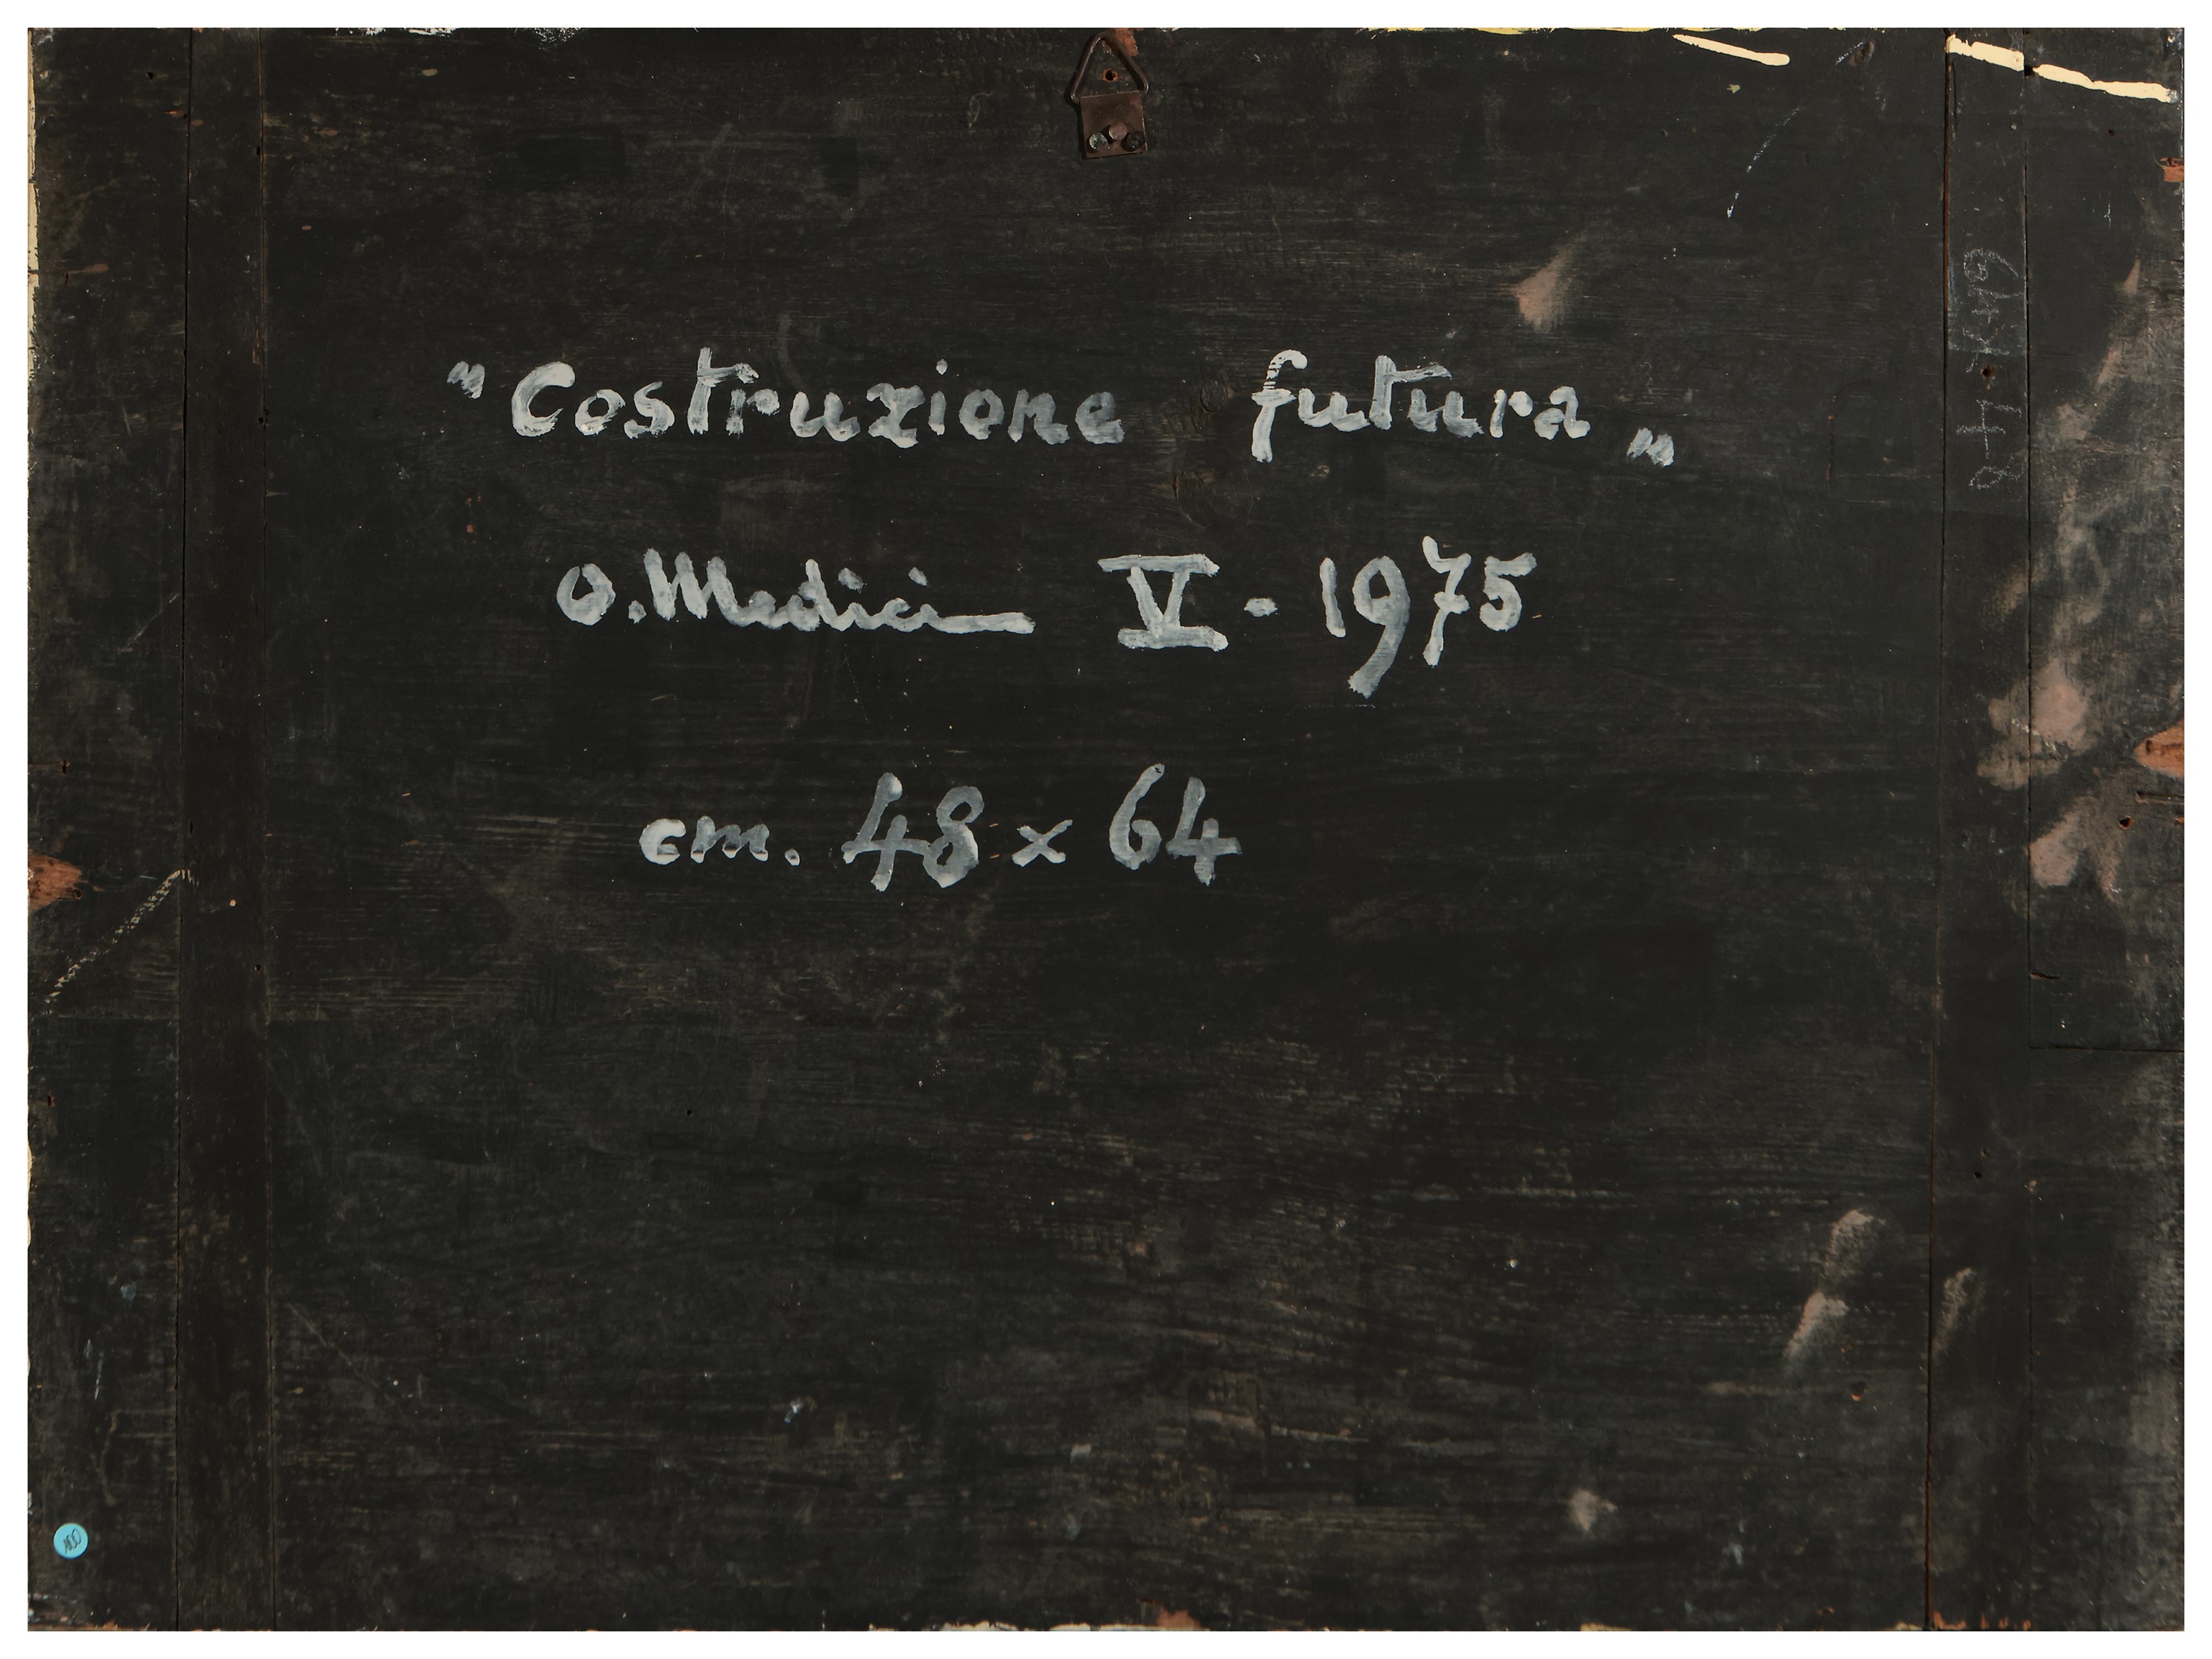 "Costruzione futura"
O. Medici V - 1975
cm. 48 x 64
100